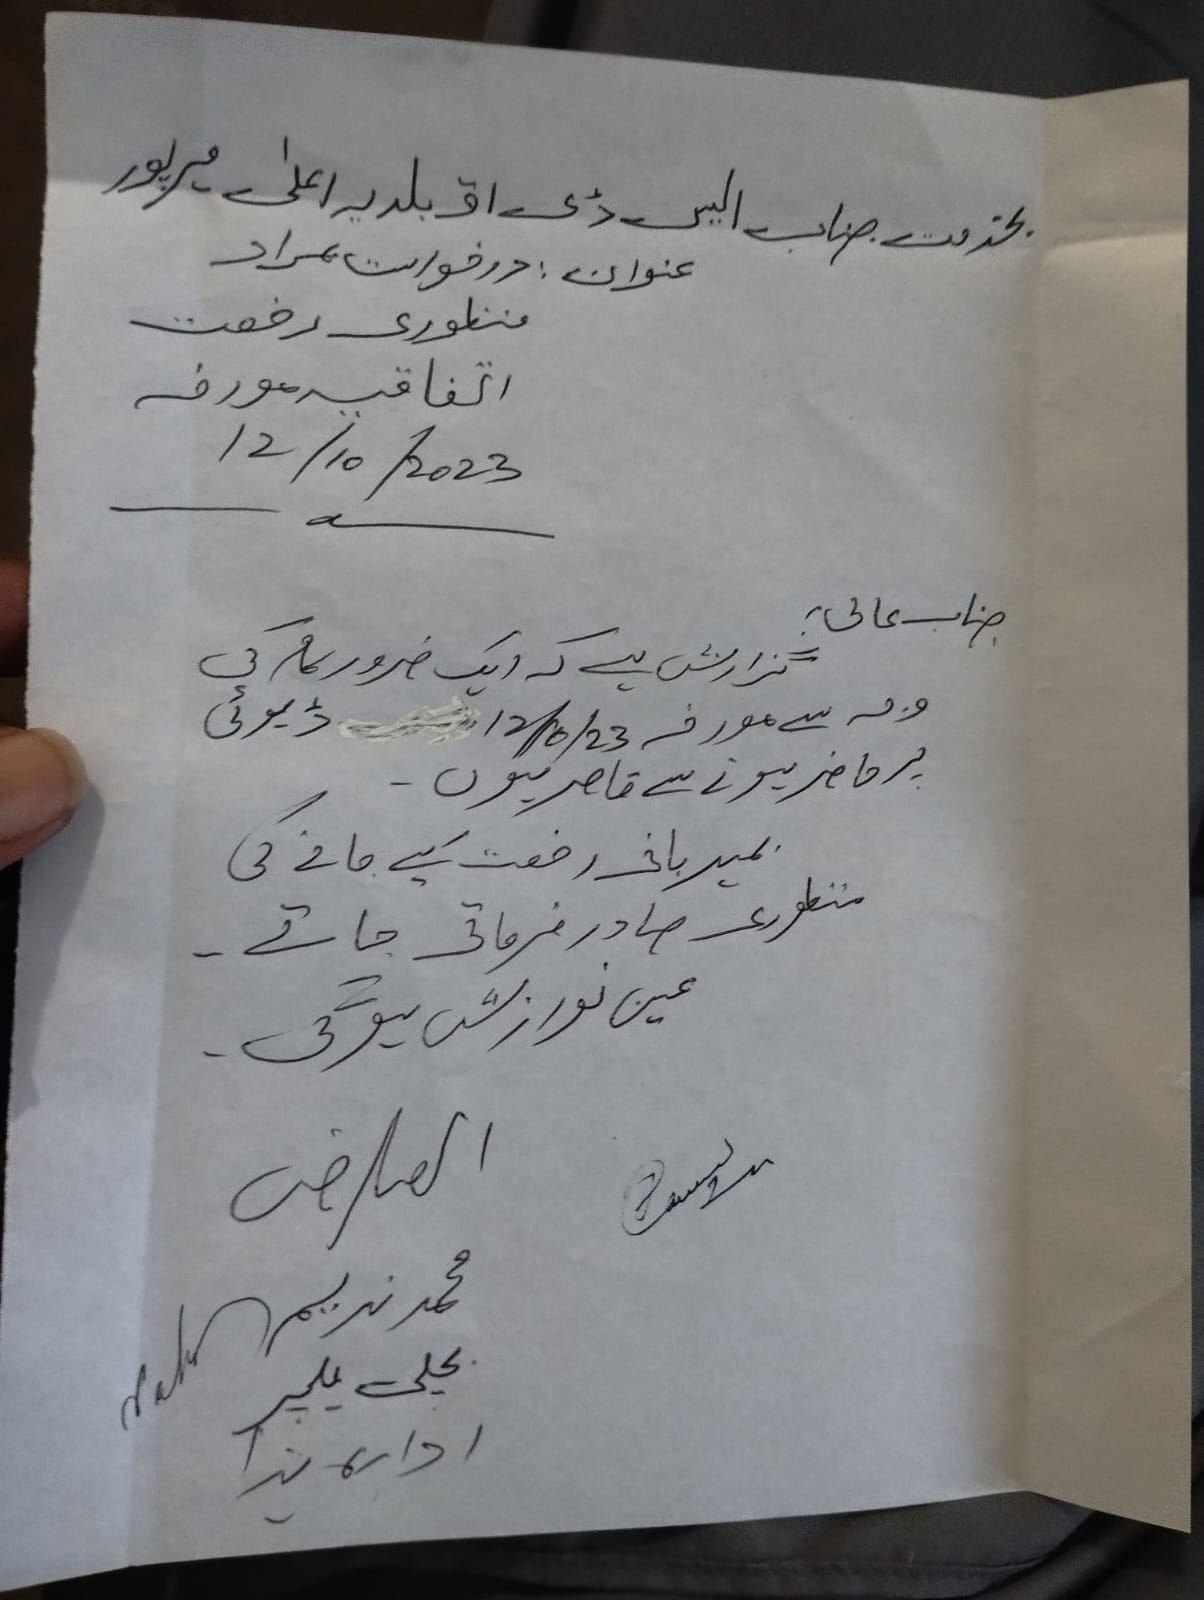 بخدمت جناب ایس ڈی او بلدیہ اعلیٰ میرپور
عنوان: درخواست بمراد
منظوری رخصت
اتفاقیہ مورخہ
12/10/2023
جناب عالی؛
گزارش ہے کہ ایک ضرور کام کی
وجہ سے مورخہ 12/10/23 ڈیوٹی
پر حاضر ہونے سے قاصر ہوں۔
بمہربانی رخصت کیے جانے کی
منظوری صادر فرمائی جائے۔
عین نوازش ہوگی۔
العارض
محمد ندیم
بجلی ہیلپر
ادارہ ہذا